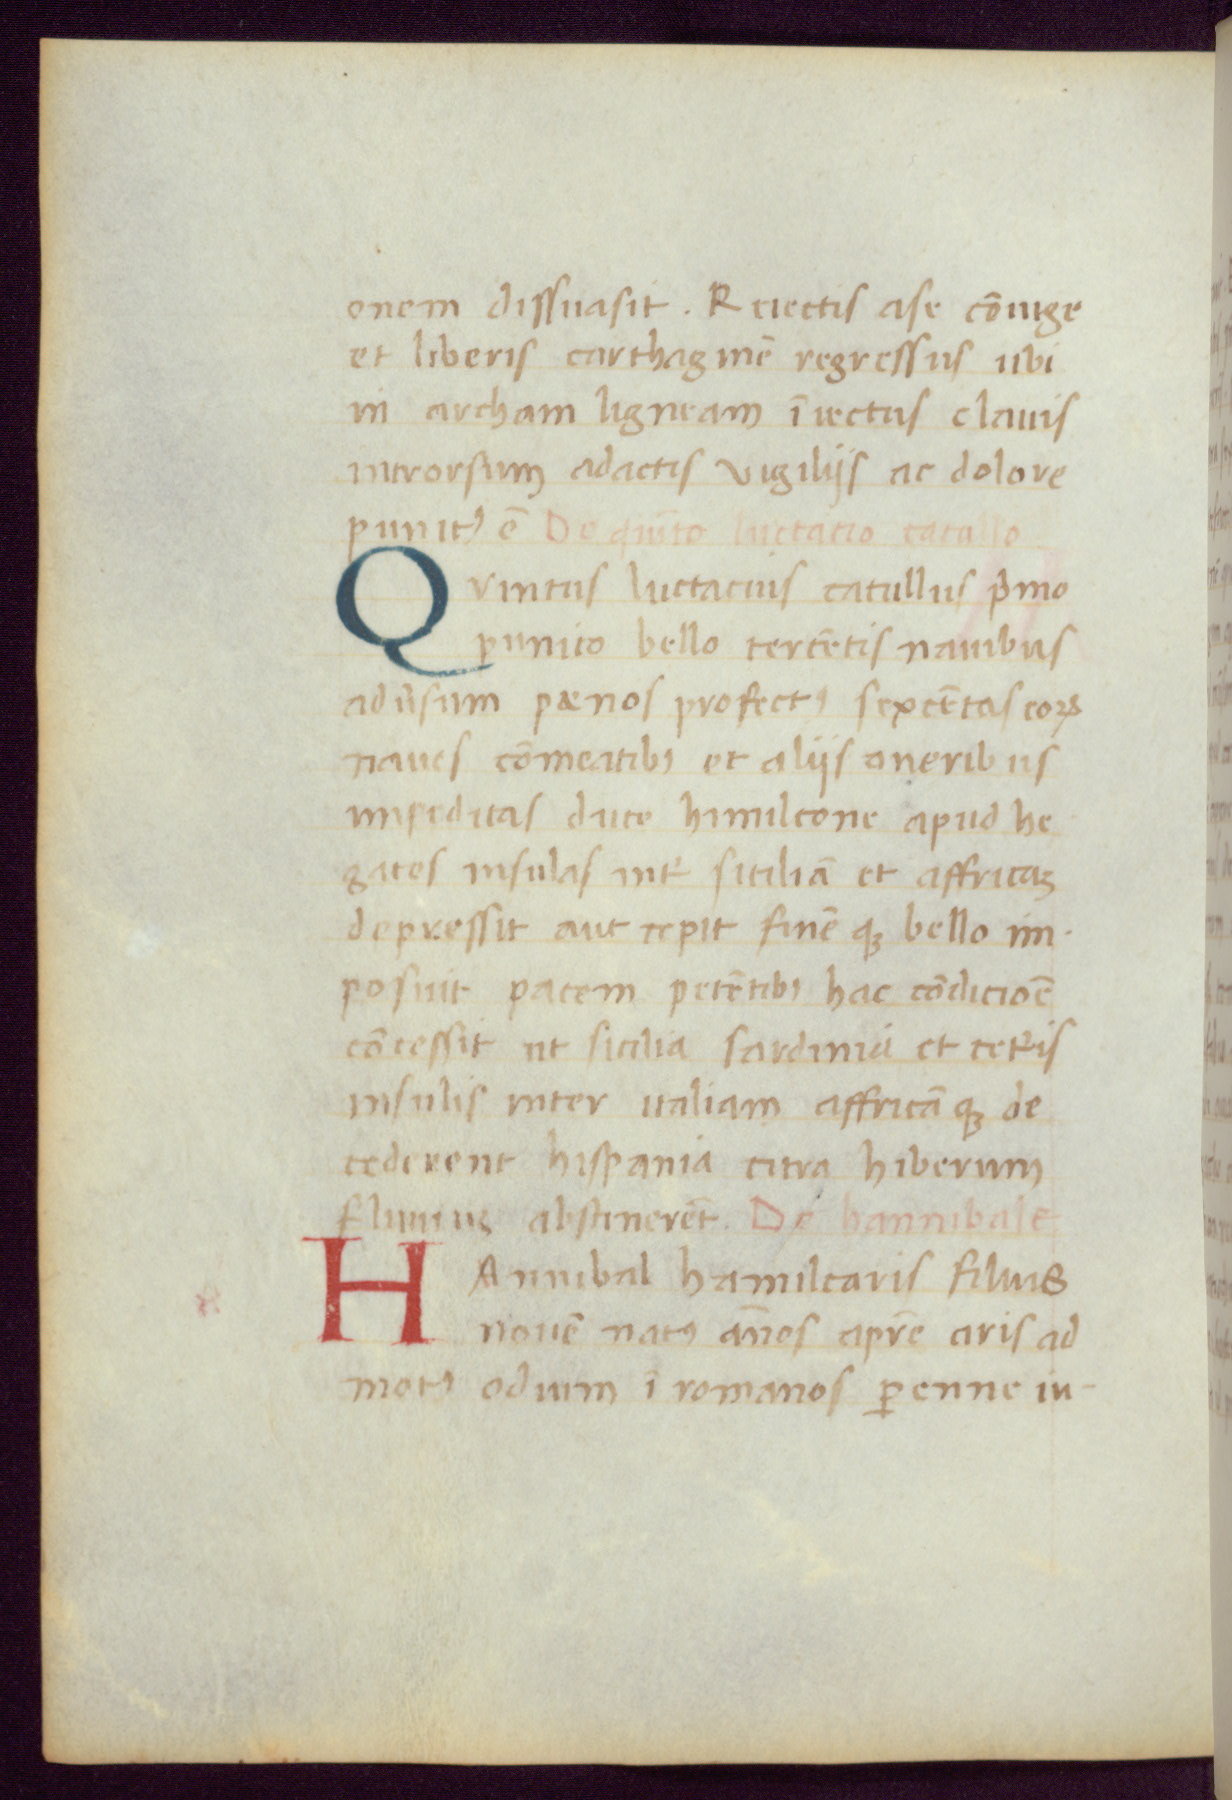 onem dissuasit. Reiectis ase cōiuge
et liberis carthaginē regressus ubi
in archam ligneam īiectus clauis
introrsum adactis vigilijs ac dolore
punitꝰ ē De quīto luctatio catullo
QVintus luctacius catullus p̄mo
punico bello tercētis nauibus
adūsum pænos profectꝰ sexcētas eoꝝ
naues cōmeatibꝰ et alijs oneribus
impeditas duce himilcone apud he
gates insulas int̄ siciliā et affricaꝫ
depressit aut cepit finē qꝫ bello im-
posuit pacem petētibꝰ hac cōdicioē
cōcessit ut sicilia sardinia et cet̄is
insulis inter italiam affricā qꝫ de
cederent hispania citra hiberum
fluuiuꝫ abstinerēt. De hannibale
HAnnibal hamilcaris filius
nouē natꝰ an̄os apr̄e aris ad
motꝰ odium ī romanos ꝑenne iu-